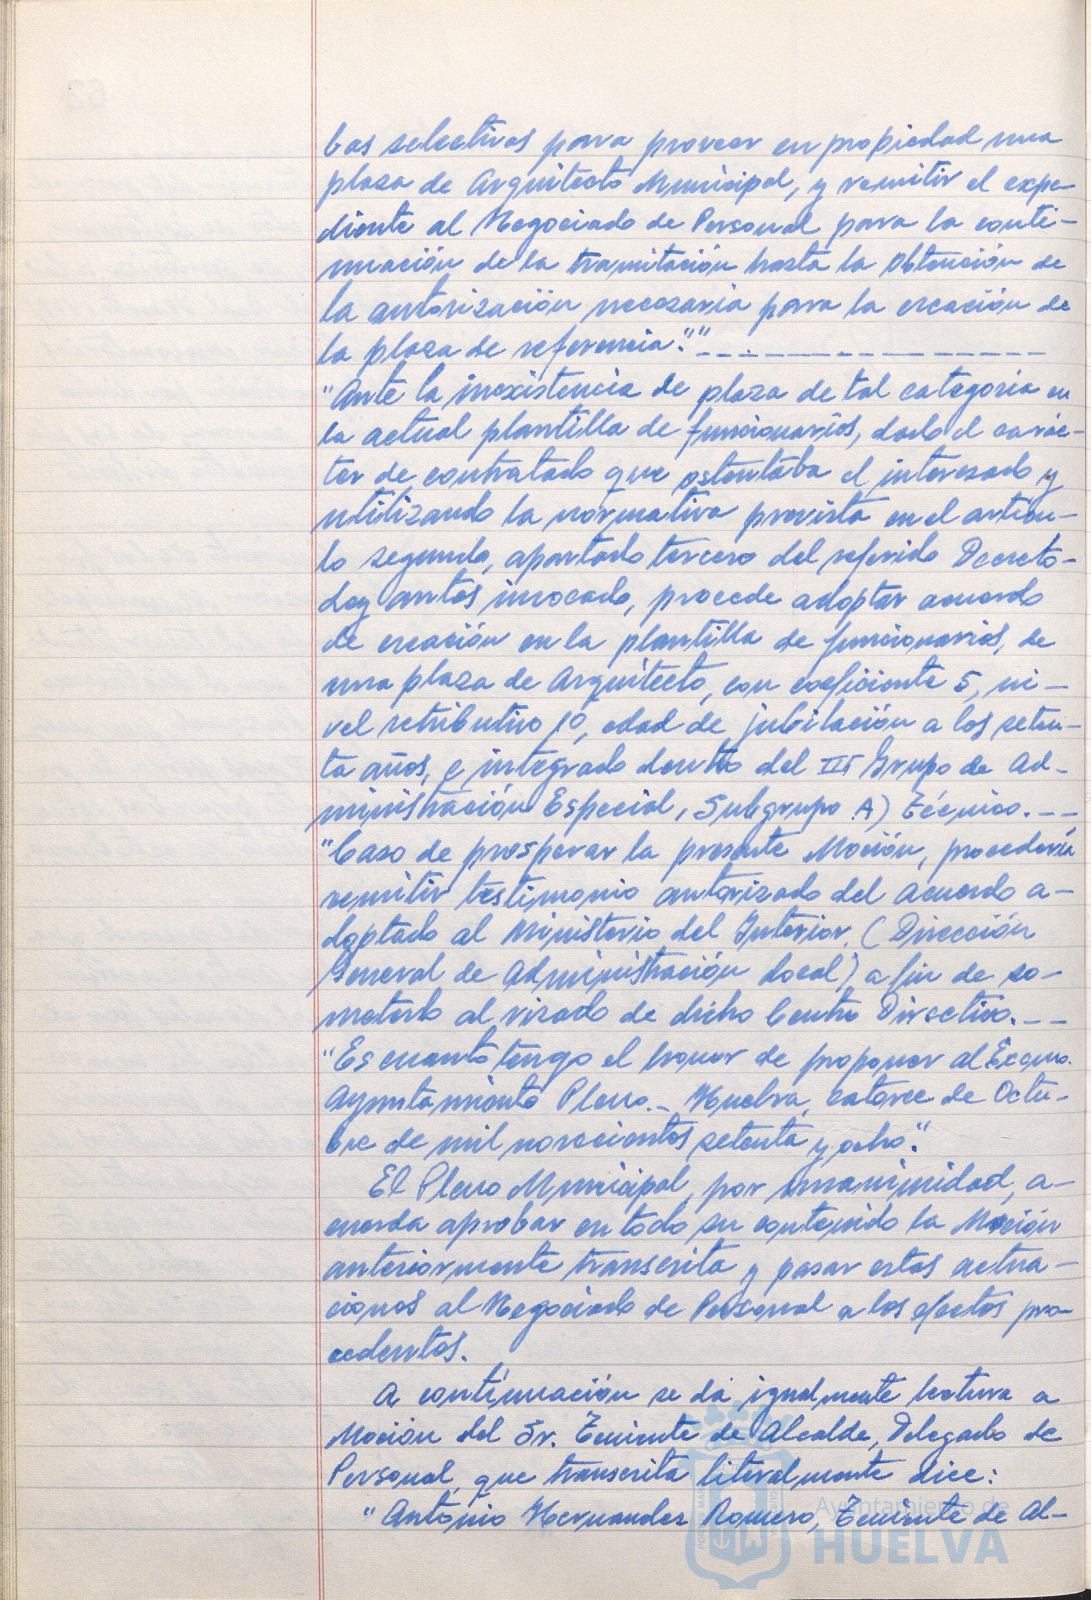 bas selectivas para proveer en propiedad una
plaza de Arquitecto Municipal, y remitir el expe-
diente al Negociado de Personal para la conti-
nuación de la tramitación hasta la obtención de
la autorización necesaria para la creación de
la plaza de referencia."."
"Ante la inexistencia de plaza de tal categoría en
la actual plantilla de funcionarios, dado el carác-
ter de contratado que ostentaba el interesado y
utilizando la normativa prevista en el artícu-
lo segundo, apartado tercero del referido Decreto-
Ley antes invocado, procede adoptar acuerdo
de creación en la plantilla de funcionarios, de
una plaza de Arquitecto, con coeficiente 5, ni-
vel retributivo 10, edad de jubilación a los seten-
ta años, e integrado dentro del III Grupo de Ad-
ministración Especial, Subgrupo A) Técnico.--
"Caso de prosperar la presente Moción, procedería
remitir testimonio autorizado del acuerdo a-
doptado al Ministerio del Interior (Dirección
General de Administración Local) a fin de so-
meterlo al visado de dicho Centro Directivo.--
"Es cuanto tengo el honor de proponer al Excmo.
Ayuntamiento Pleno.- Huelva, catorce de Octu-
bre de mil novecientos setenta y ocho."
El Pleno Municipal, por unanimidad, a-
cuerda aprobar en todo su contenido la Moción
anteriormente transcrita y pasar estas actua-
ciones al Negociado de Personal a los efectos pro-
cedentes.
A continuación se dá igualmente lectura a
Moción del Sr. Teniente de Alcalde, Delegado de
Personal, que transcrita literalmente dice:
"Antonio Hernandez Romero, Teniente de Al-
Ayuntamiento de
HUELVA